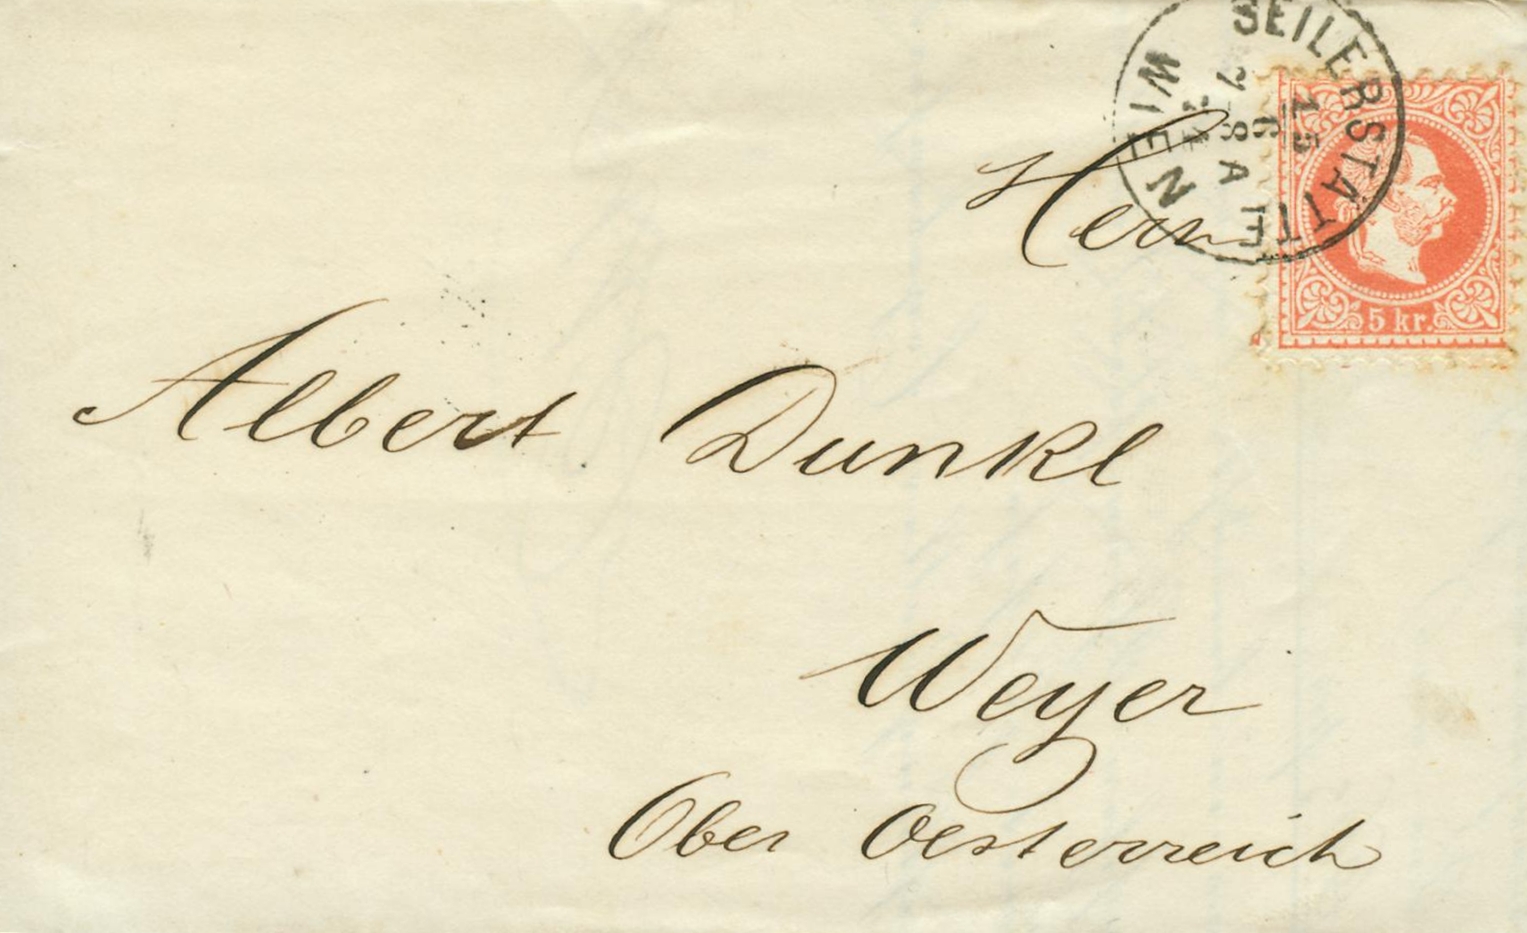 SEILERSTÄTTE
WIEN
15
6
74
78A
5 kr.
Herrn
Albert Dunkl
Weyer
Ober Oesterreich